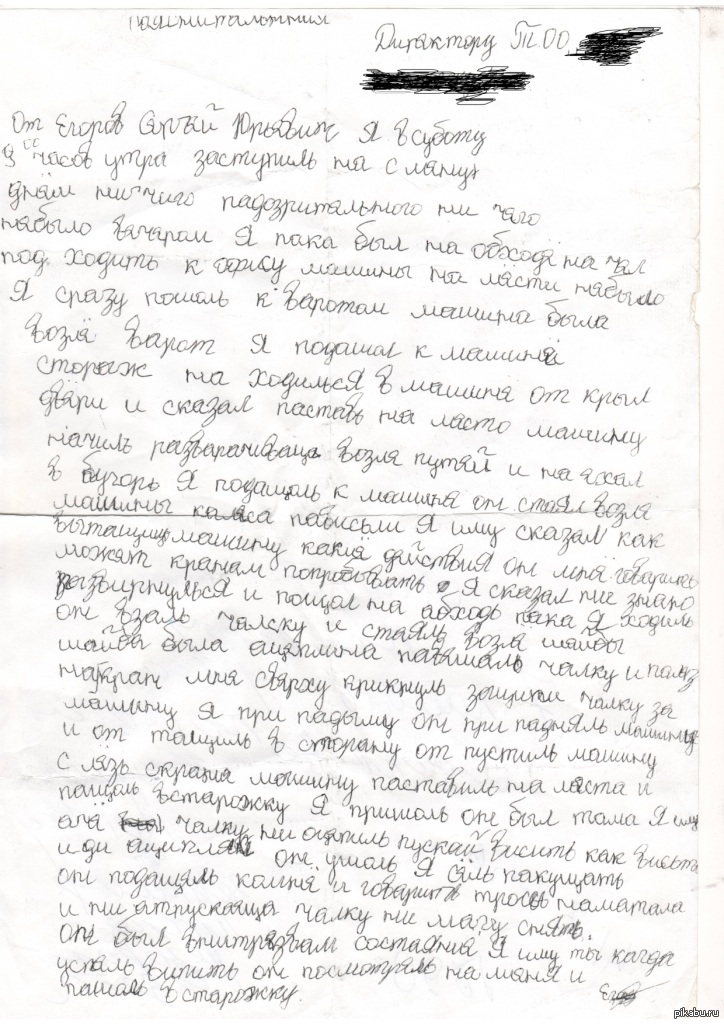 паяснитальния
Дирактору Т.ОО
От Егоров Сергей Юрьевич Я в суботу
9 00 часов утра заступиль на сману
днём ни чиго падозритального ни чаго
набыло вачаром Я пака был на обходя начал
под ходить к офису машины на мясти набыло
Я сразу пошоль к варотам машина была
возля варот Я падашол к машиня
сторож на ходилься в машиня от крыл
двяри и сказал паставь на място машину
начиль разварачиваца возля путяй и наяхал
в бугорь Я падашоль к машиня он стоял возля
машины каляса пависьли Я иму сказал как
вытащиш машину какия дяйствия он мня говорить
можят кранам попробывать Я сказал ни знаю
развирнулься и пошол на абходь пака Я ходиль
он взяль чалку и стаяль возля шайбы
шайба была ацеплина падашоль чалку и палез
на кран мня свярху крикнуль зацыпи чалку за
машину Я при падыму он при падняль машину
и от тащиль в сторану от пустиль машину
с лязь скрана машину паставиль на мяста и
пашоль в старожку Я пришоль он был тама Я иму
ачо чалку ни ацапиль пускай висить как висьла
иди ацыпляй он ушоль Я сяль пакущать
он падашоль камня и говорить тросы наматала
и ни атпускаяца чалку ни магу снять.
он был внитрязвам состаянии Я иму ты кагда
успаль выпить он посмотряль на мяня и
пашоль в старожку.
pikabu.ru